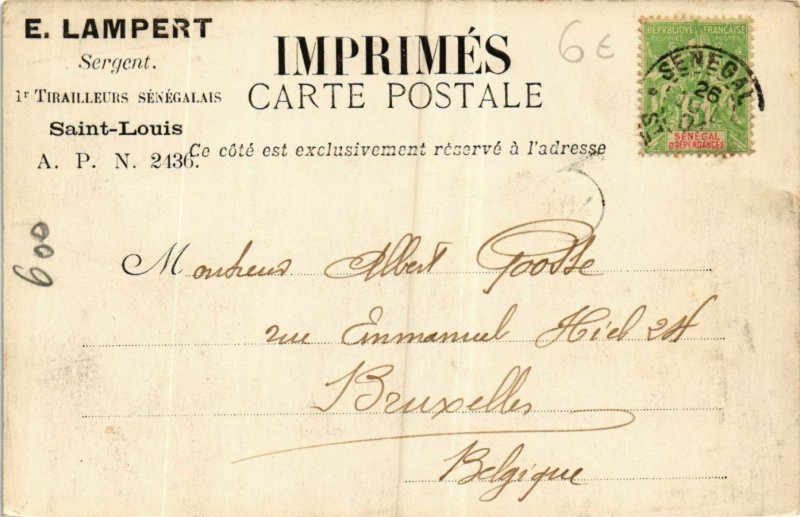 E. LAMPERT
Sergent.
1r TIRAILLEURS SÉNÉGALAIS
Saint-Louis
A. P. N. 2436.
IMPRIMÉS
CARTE POSTALE
Ce côté est exclusivement réservé à l'adresse
6 €
RÉPUBLIQUE FRANÇAISE
COLONIES POSTES
SÉNÉGAL
26
SÉNÉGAL
ET DÉPENDANCES
600
Monsieur Albert Goosse
rue Emmanuel Hiel 24
Bruxelles
Belgique